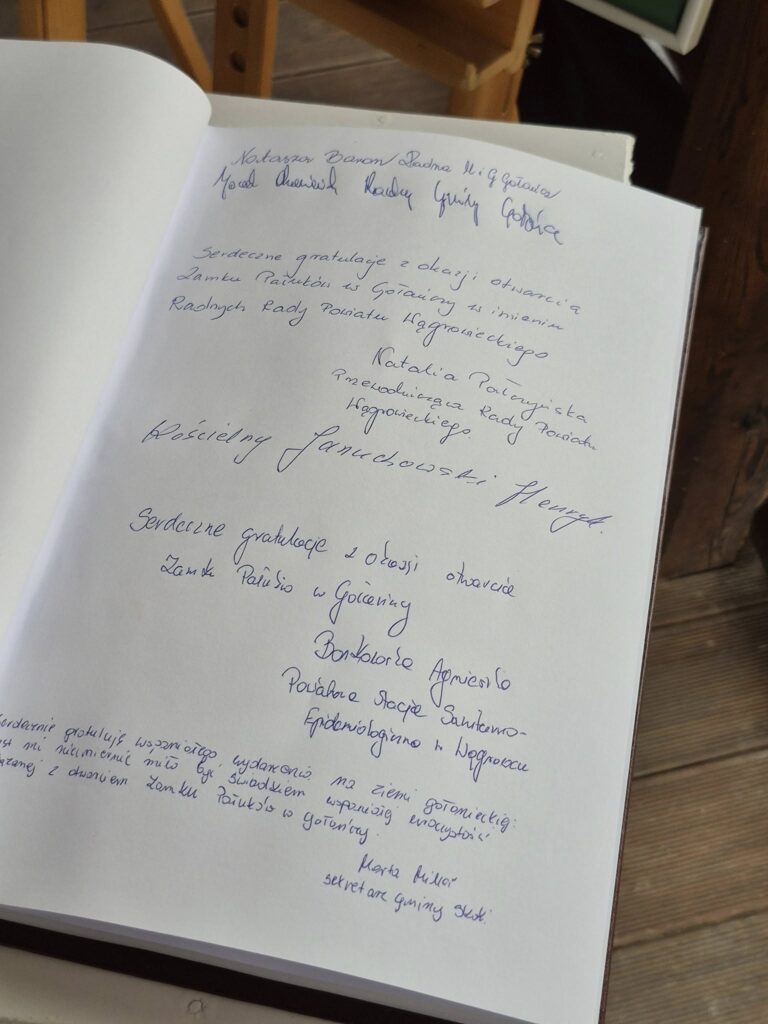 Natasza Baron / Radna M i G Gołańcz
Radny Gminy Gołańcz
Serdeczne gratulacje z okazji otwarcia
Zamku Pałuków w Gołańczy w imieniu
Radnych Rady Powiatu Wągrowieckiego
Natalia Pałczyńska
Przewodnicząca Rady Powiatu
Wągrowieckiego
Kościelny Januchowski Henryk.
Serdeczne gratulacje z okazji otwarcia
Zamku Pałuków w Gołańczy
Agnieszka
Powiatowa Stacja Sanitarno-
Epidemiologiczna w Wągrowcu
Serdecznie gratuluję wspaniałego wydarzenia na ziemi gołanieckiej.
Jest mi niezmiernie miło być świadkiem wspaniałej uroczystości
związanej z otwarciem Zamku Pałuków w Gołańczy.
Marta
sekretarz gminy Skoki